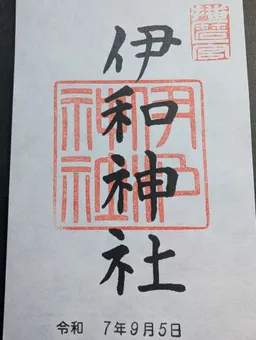 伊和神社
伊和
神社
令和 7年9月5日